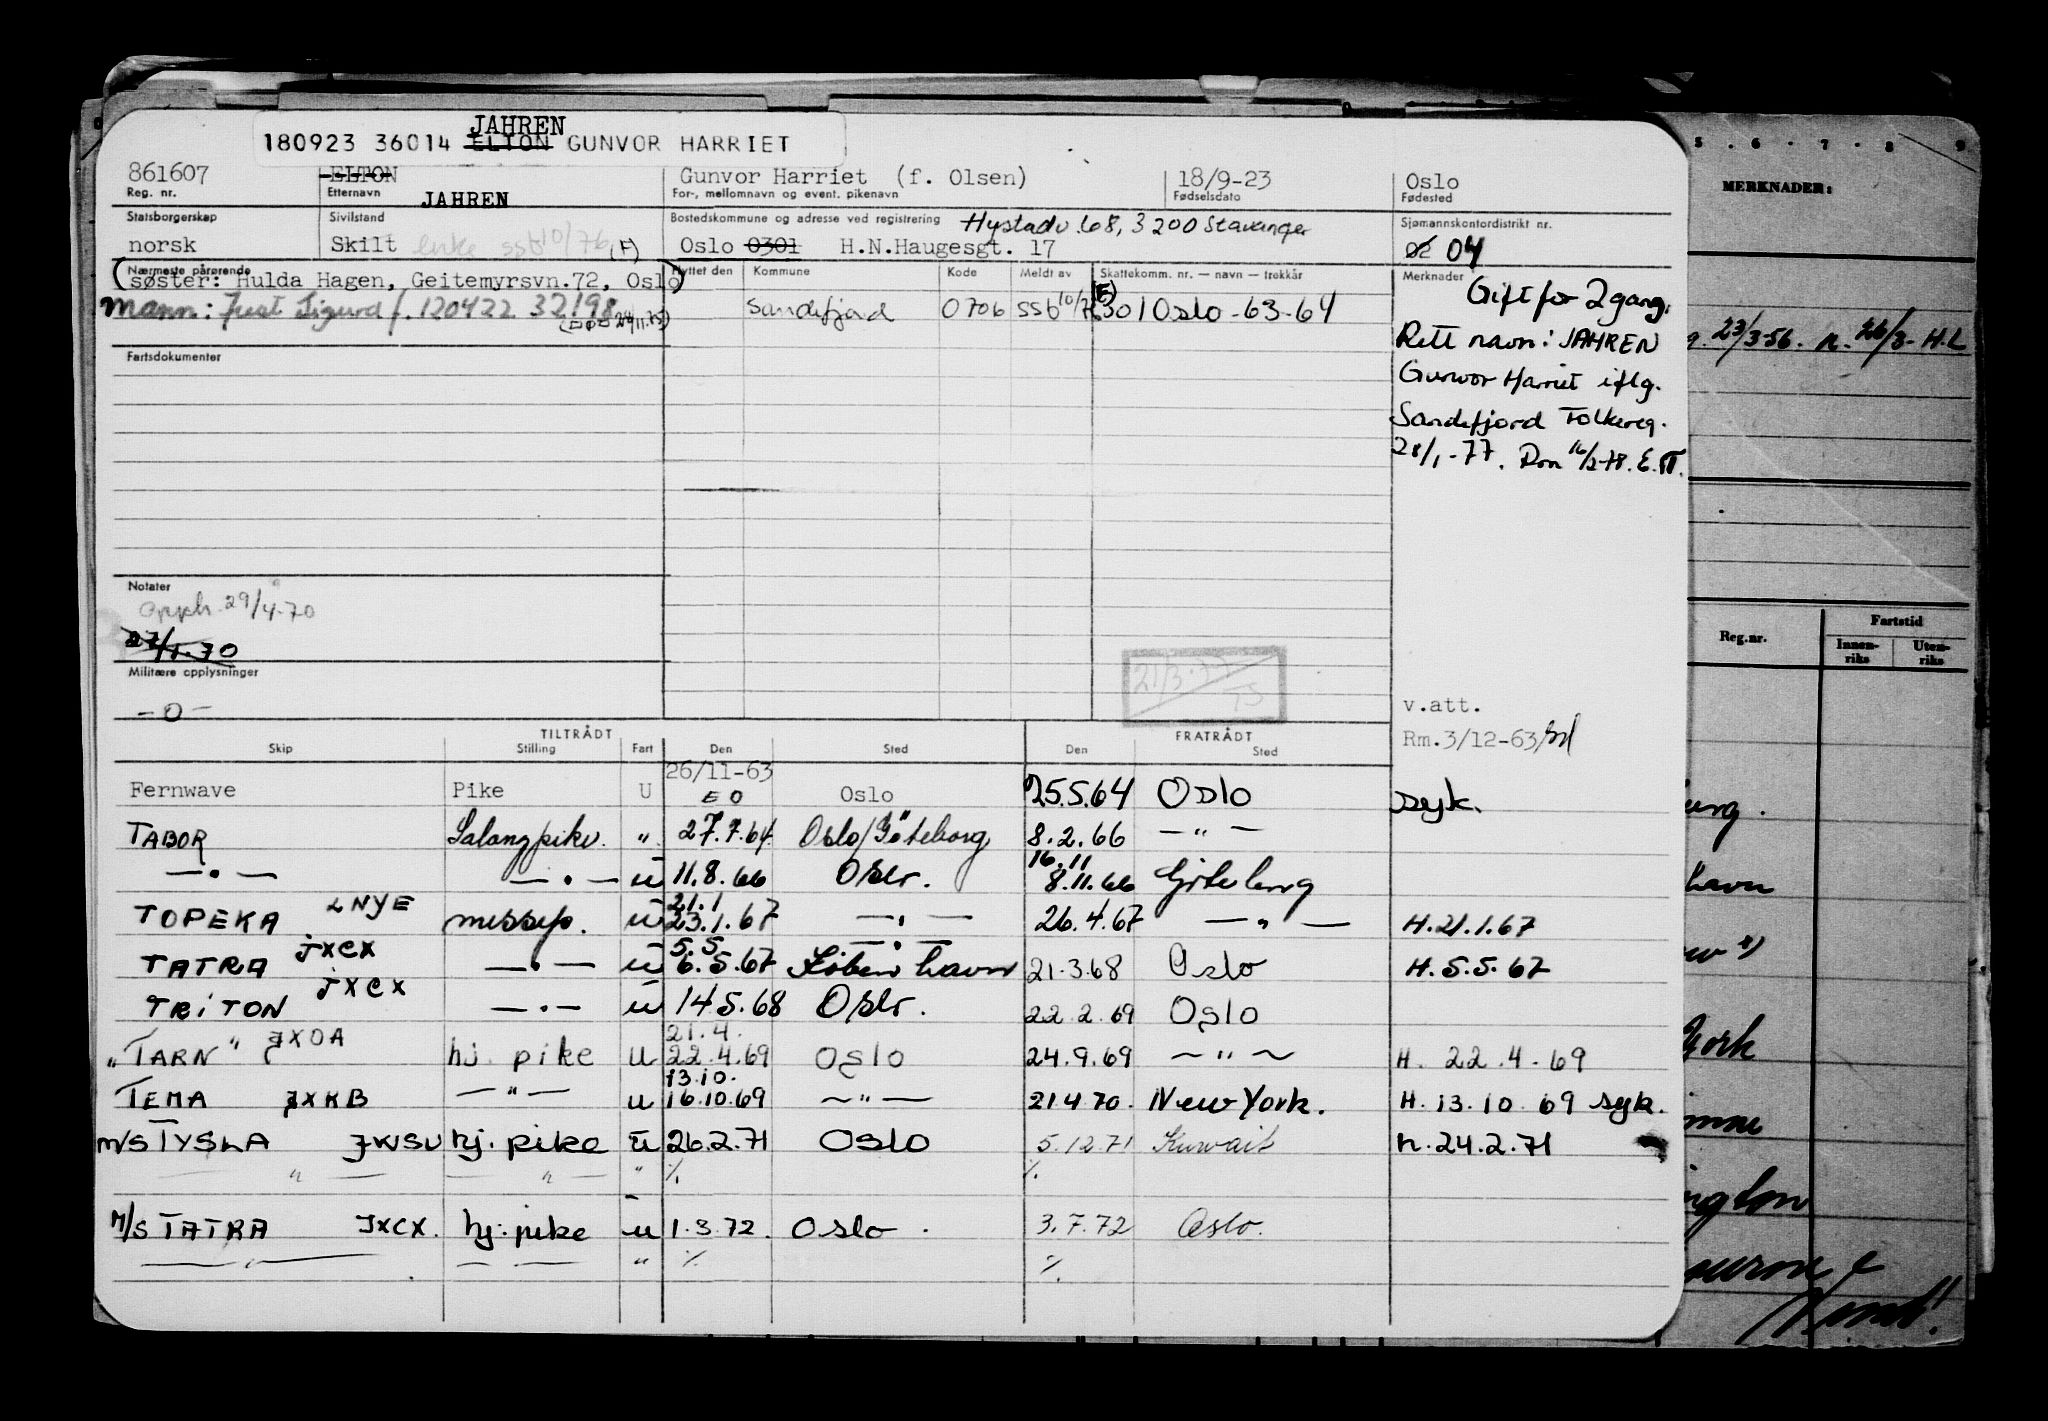 JAHREN
180923 36014 ELTON GUNVOR HARRIET
861607 ELTON Gunvor Harriet (f. Olsen) 18/9-23 Oslo
Reg. nr. Etternavn JAHREN For-, mellomnavn og event. pikenavn Fødselsdato Fødested
Statsborgerskap Sivilstand Bostedskommune og adresse ved registrering Hystadv. 68, 3200 Sjømannskontordistrikt nr.
norsk Skilt enke ssb 10/76 (F) Oslo 0301 H.N.Haugesgt. 17 02 04
Nærmeste pårørende Flyttet den Kommune Kode Meldt av Skattekomm. nr. — navn — trekkår Merknader
(søster: Hulda Hagen, Geitemyrsvn.72, Oslo)
Mann: Just Sigurd f. 120422 32198 Sandefjord 0706 ssb 10/76 (F) 301 Oslo-63-64 Gift for 2 gang.
(DØD 24/11.75)
Rett navn: JAHREN
Fartsdokumenter
Gunvor Harriet iflg.
Sandefjord Folkereg.
28/1-77. E.
Notater
Opph. 29/4-70
27/1.70
Militære opplysninger
-0-
21/3.75
75
v.att.
Rm.3/12-63
TILTRÅDT FRATRÅDT
Skip Stilling Fart Den Sted Den Sted
Fernwave Pike U 26/11-63 EO Oslo 25.5.64 Oslo syk.
TABOR Salongpike. " 27.7.64 Oslo/Göteborg 8.2.66 — " —
— " — — " — u 11.8.66 Oslo. 16.11 8.11.66 Göteborg
TOPEKA LNYE messep. u 21.1 23.1.67 — " — 26.4.67 — " — H.21.1.67
TATRA JXCX — " — u 5.5 6.5.67 København 21.3.68 Oslo H.5.5.67
TRITON JXCX — " — u 14.5.68 Oslo. 22.2.69 Oslo
"TARN" JXOA hj. pike u 21.4. 22.4.69 Oslo 24.9.69 — " — H. 22.4.69
TEMA JXKB — " — u 13.10. 16.10.69 — " — 21.4.70. New York. H. 13.10.69 syk.
M/S TYSLA JWSU hj. pike u 26.2.71 Oslo 5.12.71 Kuwait h.24.2.71
— " — — " — " % %
M/S TATRA JXCX. hj. pike u 1.3.72. Oslo. 3.7.72 Oslo.
— " — — " % %
5 . 6 . 7 . 8 . 9
MERKNADER:
23/3-56. 26/3- H.L
Reg.nr. Fartstid
Innenriks Utenriks